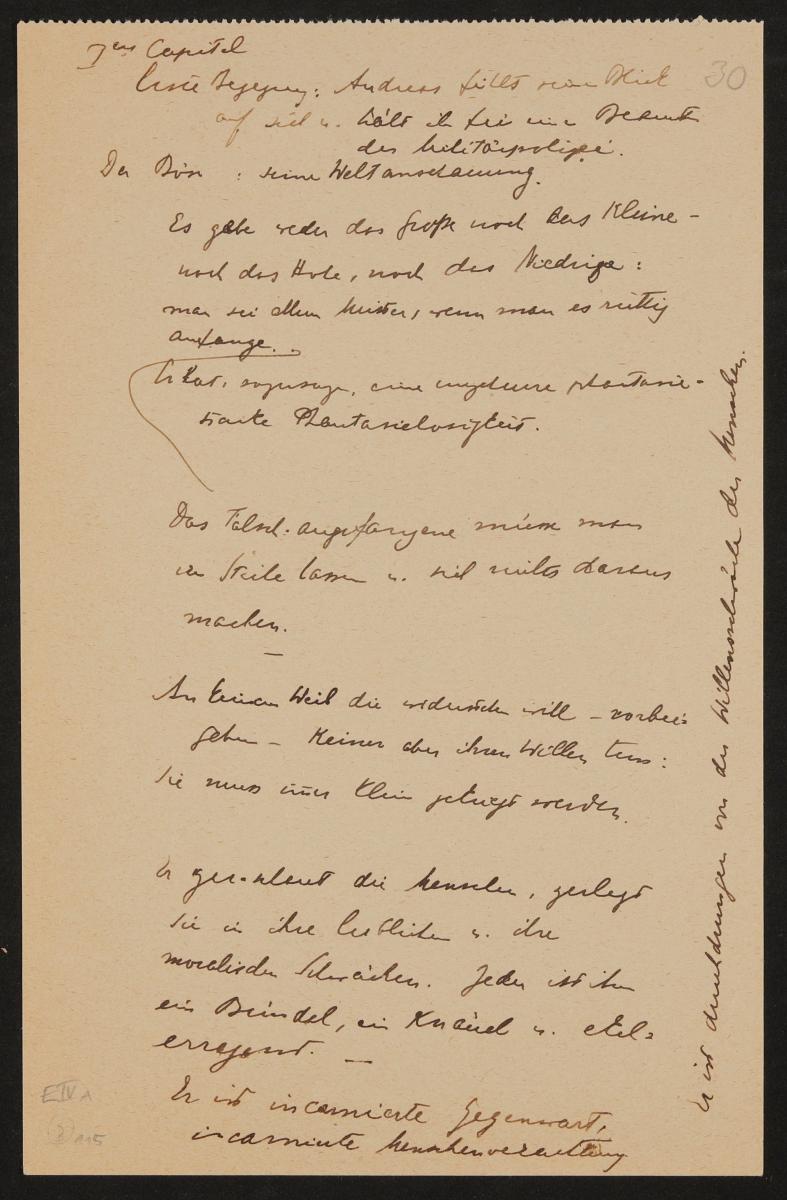 Capitel
30
Erste Begegnung: Andreas fühlt seinen Blick
auf sich u. hält ihn für einen Beamten
der Militärpolizei.
Der Böse : seine Weltanschauung.
Es gebe weder das Große noch das Kleine –
noch das Hohe, noch das Niedrige:
man sei allem Meister, wenn man es richtig
anfange.
Er hat, sozusagen, eine ungeheure phantasie-
starke Phantasielosigkeit.
Das Falsch-angefangene müsse man
im Stiche lassen u. sich nichts daraus
machen.
–
An keinem Weib die widerstehen will – vorbei-
gehen – Keiner aber ihren Willen tun:
Sie muss im̄er klein gekriegt werden.
Er die Menschen, zerlegt
sie in ihre leiblichen u. ihre
moralischen Schwächen. Jeder ist ihm
ein Bündel, ein Knäuel u. ekel-
erregend. –
Er ist incarnierte Gegenwart,
incarnierte Menschenverachtung
Er ist durchdrungen von der Willensschwäche der Menschen.
E IV A
115